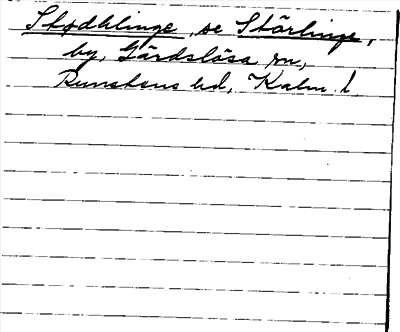 Stodhlinge, se Störlinge,
by, Gärdslösa sn,
Runstens hd, Kalm. l.